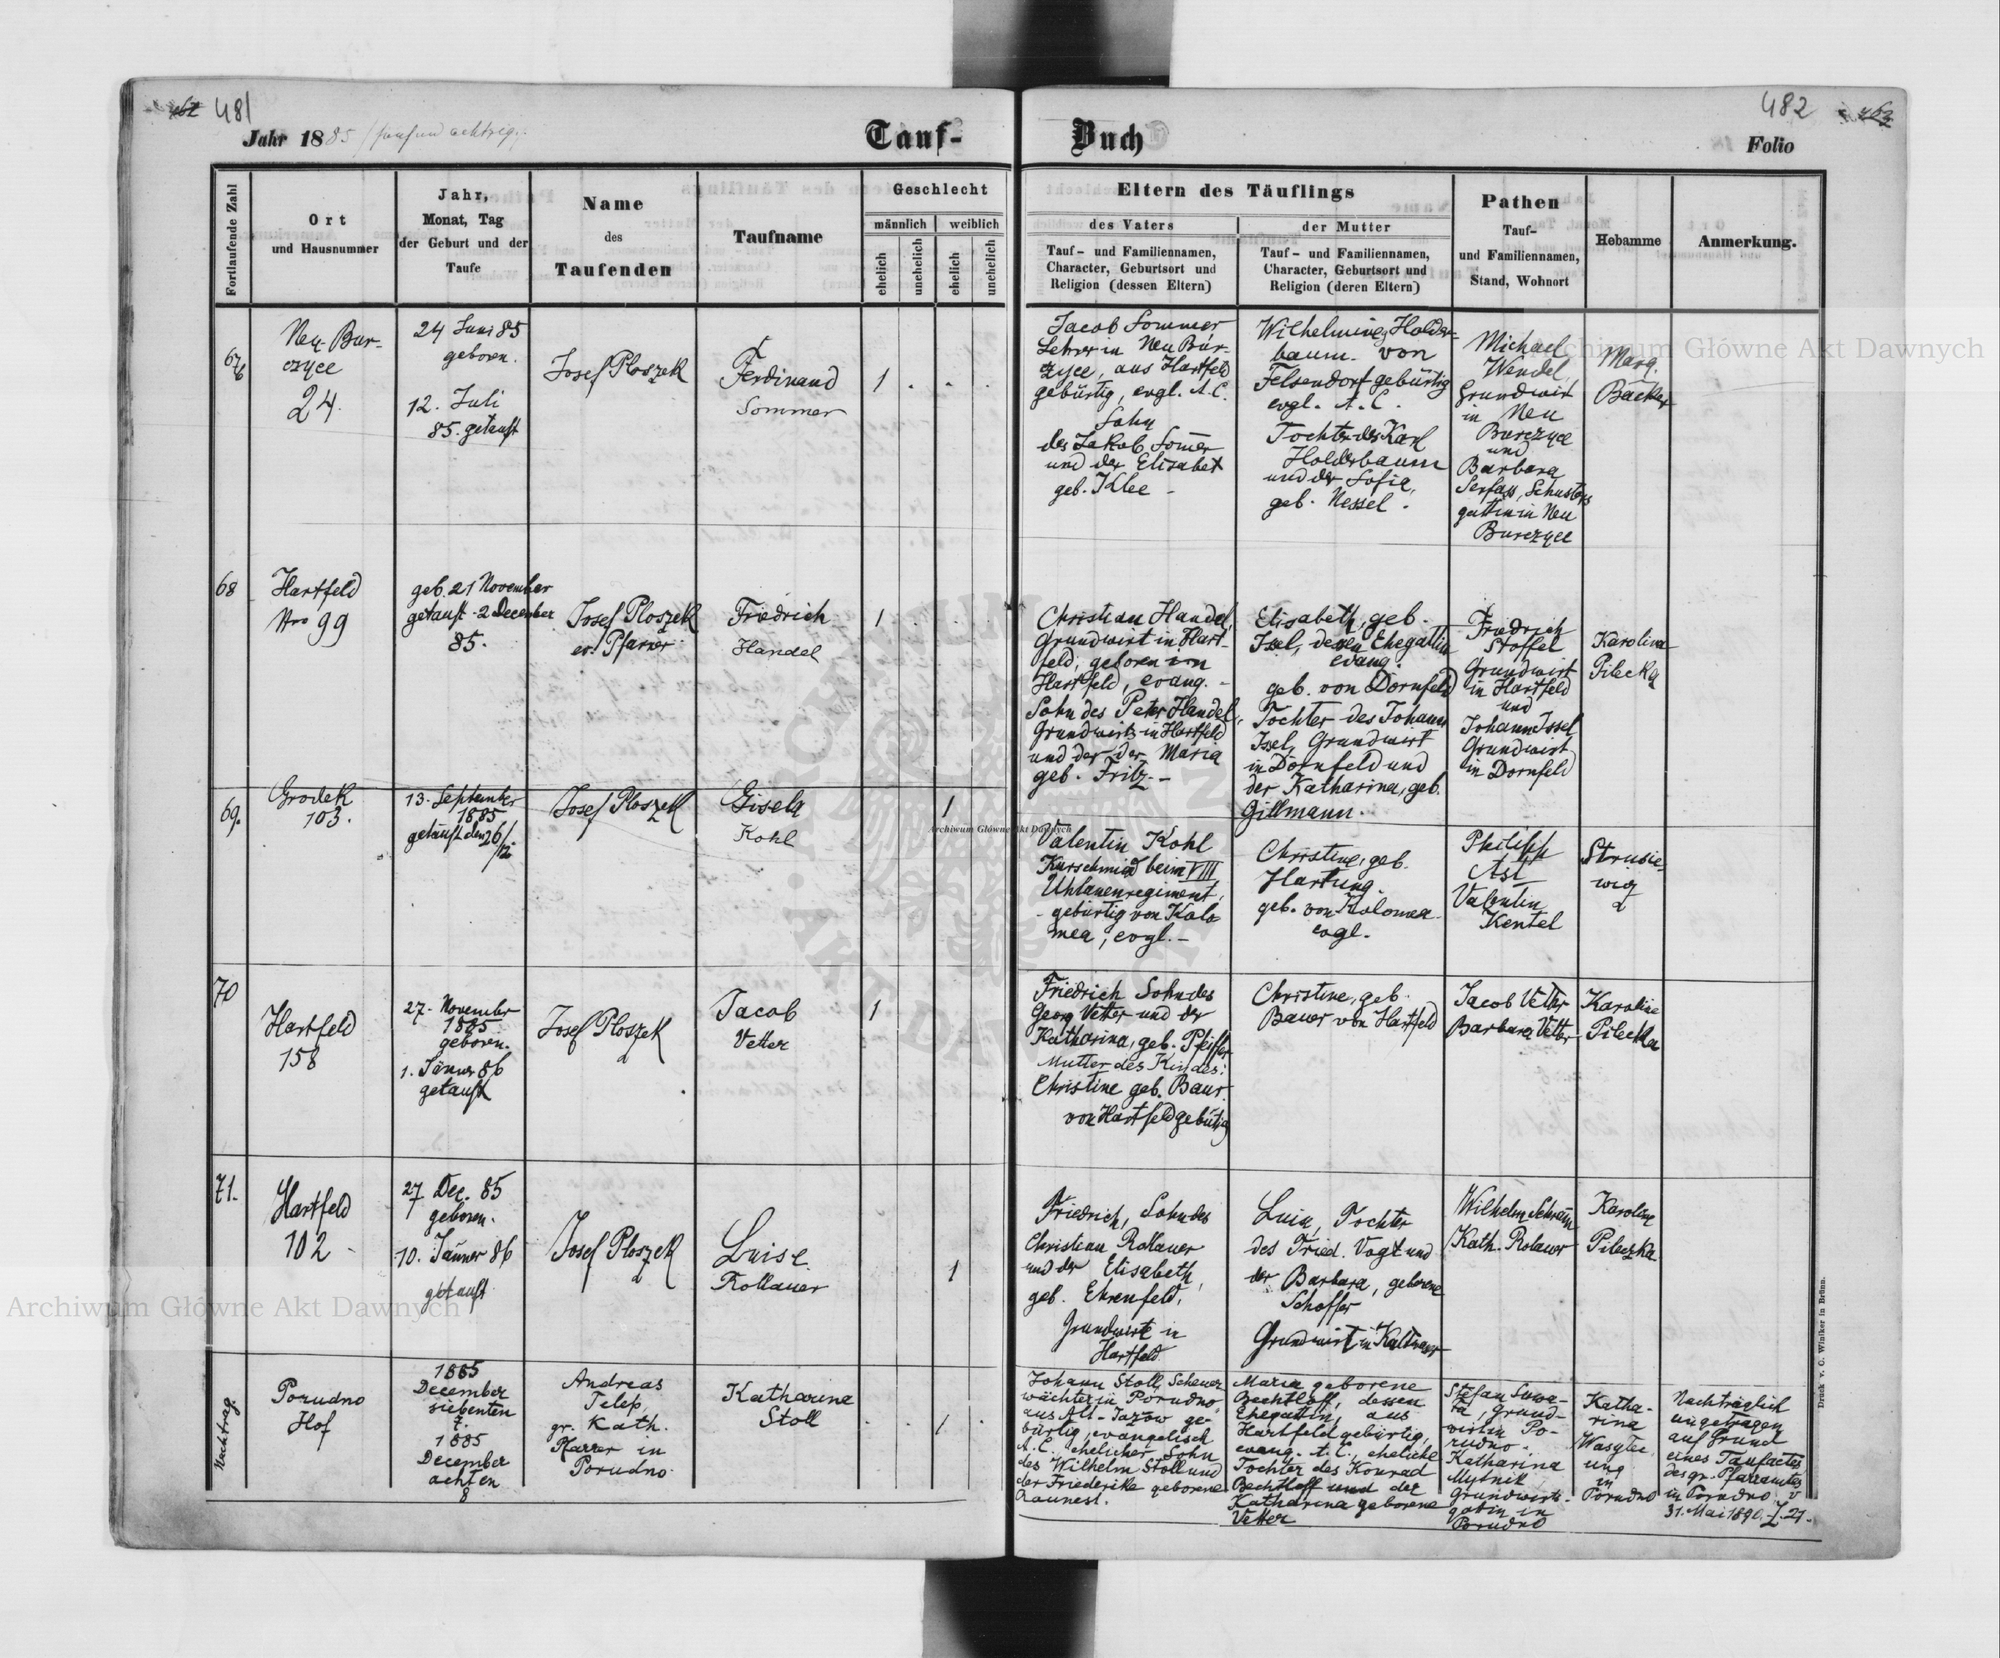 481
Jahr 1885 /fünf und achtzig.
Tauf-
Buch
482
Folio
Fortlaufende Zahl
Ort
und Hausnummer
Jahr,
Monat, Tag
der Geburt und der
Taufe
Name
des
Taufenden
Taufname
Geschlecht
männlich
weiblich
ehelich
unehelich
ehelich
unehelich
Eltern des Täuflings
des Vaters
Tauf- und Familiennamen,
Character, Geburtsort und
Religion (dessen Eltern)
der Mutter
Tauf- und Familiennamen,
Character, Geburtsort und
Religion (deren Eltern)
Pathen
Tauf-
und Familiennamen,
Stand, Wohnort
Hebamme
Anmerkung.
67
Neu Bur-
czyce
24.
24 Juni 85
geboren.
12. Juli
85. getauft
Josef Ploszek
Ferdinand
Sommer
1
Jacob Sommer
Lehrer in Neu Bur-
czyce, aus Hartfeld
gebürtig, evgl. A.C.
Sohn
des Jakob Somer
und der Elisabet
geb. Klee -
Wilhelmine, Holder-
baum. von
Felsendorf gebürtig
evgl. A.C.
Tochter des Karl
Holderbaum
und der Sofia,
geb. Nessel.
Michael
Wendel,
Grundwirt
in Neu
Burczyce
und
Barbara
Serfass, Schusters
gattin in Neu
Burczyce
Marg.
Bäcker
68
Hartfeld
Nro 99
geb. 21 November
getauft 2 December
85.
Josef Ploszek
ev. Pfarrer
Friedrich
Handel
1
Christian Handel,
Grundwirt in Hart-
feld, geboren von
Hartfeld, evang. -
Sohn des Peter Handel,
Grundwirts in Hartfeld
und der der Maria
geb. Fritz. -
Elisabeth, geb.
Issel, dessen Ehegattin
evang.
geb. von Dornfeld
Tochter des Johann
Issel, Grundwirt
in Dornfeld und
der Katharina, geb.
Gillmann.
Friedrich
Stoffel
Grundwirt
in Hartfeld
und
Johann Issel
Grundwirt
in Dornfeld
Karolina
Pilecka
69.
Grodek
103.
13. September
1885
getauft den 26/12
Josef Ploszek
Gisela
Kohl
1
Valentin Kohl
Kurschmid beim VIII
Uhlanenregiment,
gebürtig von Kolo
mea, evgl. -
Christine, geb.
Hartung.
geb. von Kolomea
evgl.
Philipp
Ast
Valentin
Kentel
Strusie-
wicz
70
Hartfeld
158
27. November
1885
geboren.
1. Jänner 86
getauft
Josef Ploszek
Jacob
Vetter
1
Friedrich Sohn des
Georg Vetter und der
Katharina, geb. Pfeiffer
Mutter des Kindes:
Christine geb. Baur
von Hartfeld gebürtig
Christine, geb.
Bauer von Hartfeld
Jacob Vetter
Barbara Vetter
Karoline
Pilecka
71.
Hartfeld
102 -
27 Dec. 85
geboren.
10. Jänner 86
getauft
Josef Ploszek
Luise
Rollauer
1
Friedrich, Sohn des
Christian Rollauer
und der Elisabeth,
geb. Ehrenfeld,
Grundwirt in
Hartfeld
Luia, Tochter
des Fried. Vogt und
der Barbara, geborene
Schoffer
Grundwirt in
Kath. Rolauer
Karoline
Pileczka
Nachtrag.
Porudno
Hof
1885
December
siebenten
7.
1885
December
achten
8
Andreas
Telep,
gr. Kath.
Pfarrer in
Porudno.
Katharina
Stoll
1
Johann Stoll, Scheuer
wächter in Porudno,
aus Alt-Jazow ge-
bürtig, evangelisch
A.C. ehelicher Sohn
des Wilhelm Stoll und
der Friederike geborene
Maria geborene
Bechtloff, dessen
Ehegattin, aus
Hartfeld gebürtig,
evang. A.C. eheliche
Tochter des Konrad
Bechtloff und der
Katharina geborene
Vetter
Stefan Suwa-
ra, Grund-
wirt in Po-
rudno.
Katharina
Mytnik
Grundwirts-
gattin in
Porudno
Katha-
rina
in
Porudno
Nachträglich
eingetragen
auf Grund
eines Taufactes
des gr. Pfarramtes
in Porudno v
31. Mai 1890. Z. 21.
Druck v. C. Winiker in Brünn.
Archiwum Główne Akt Dawnych
Archiwum Główne Akt Dawnych
Archiwum Główne Akt Dawnych